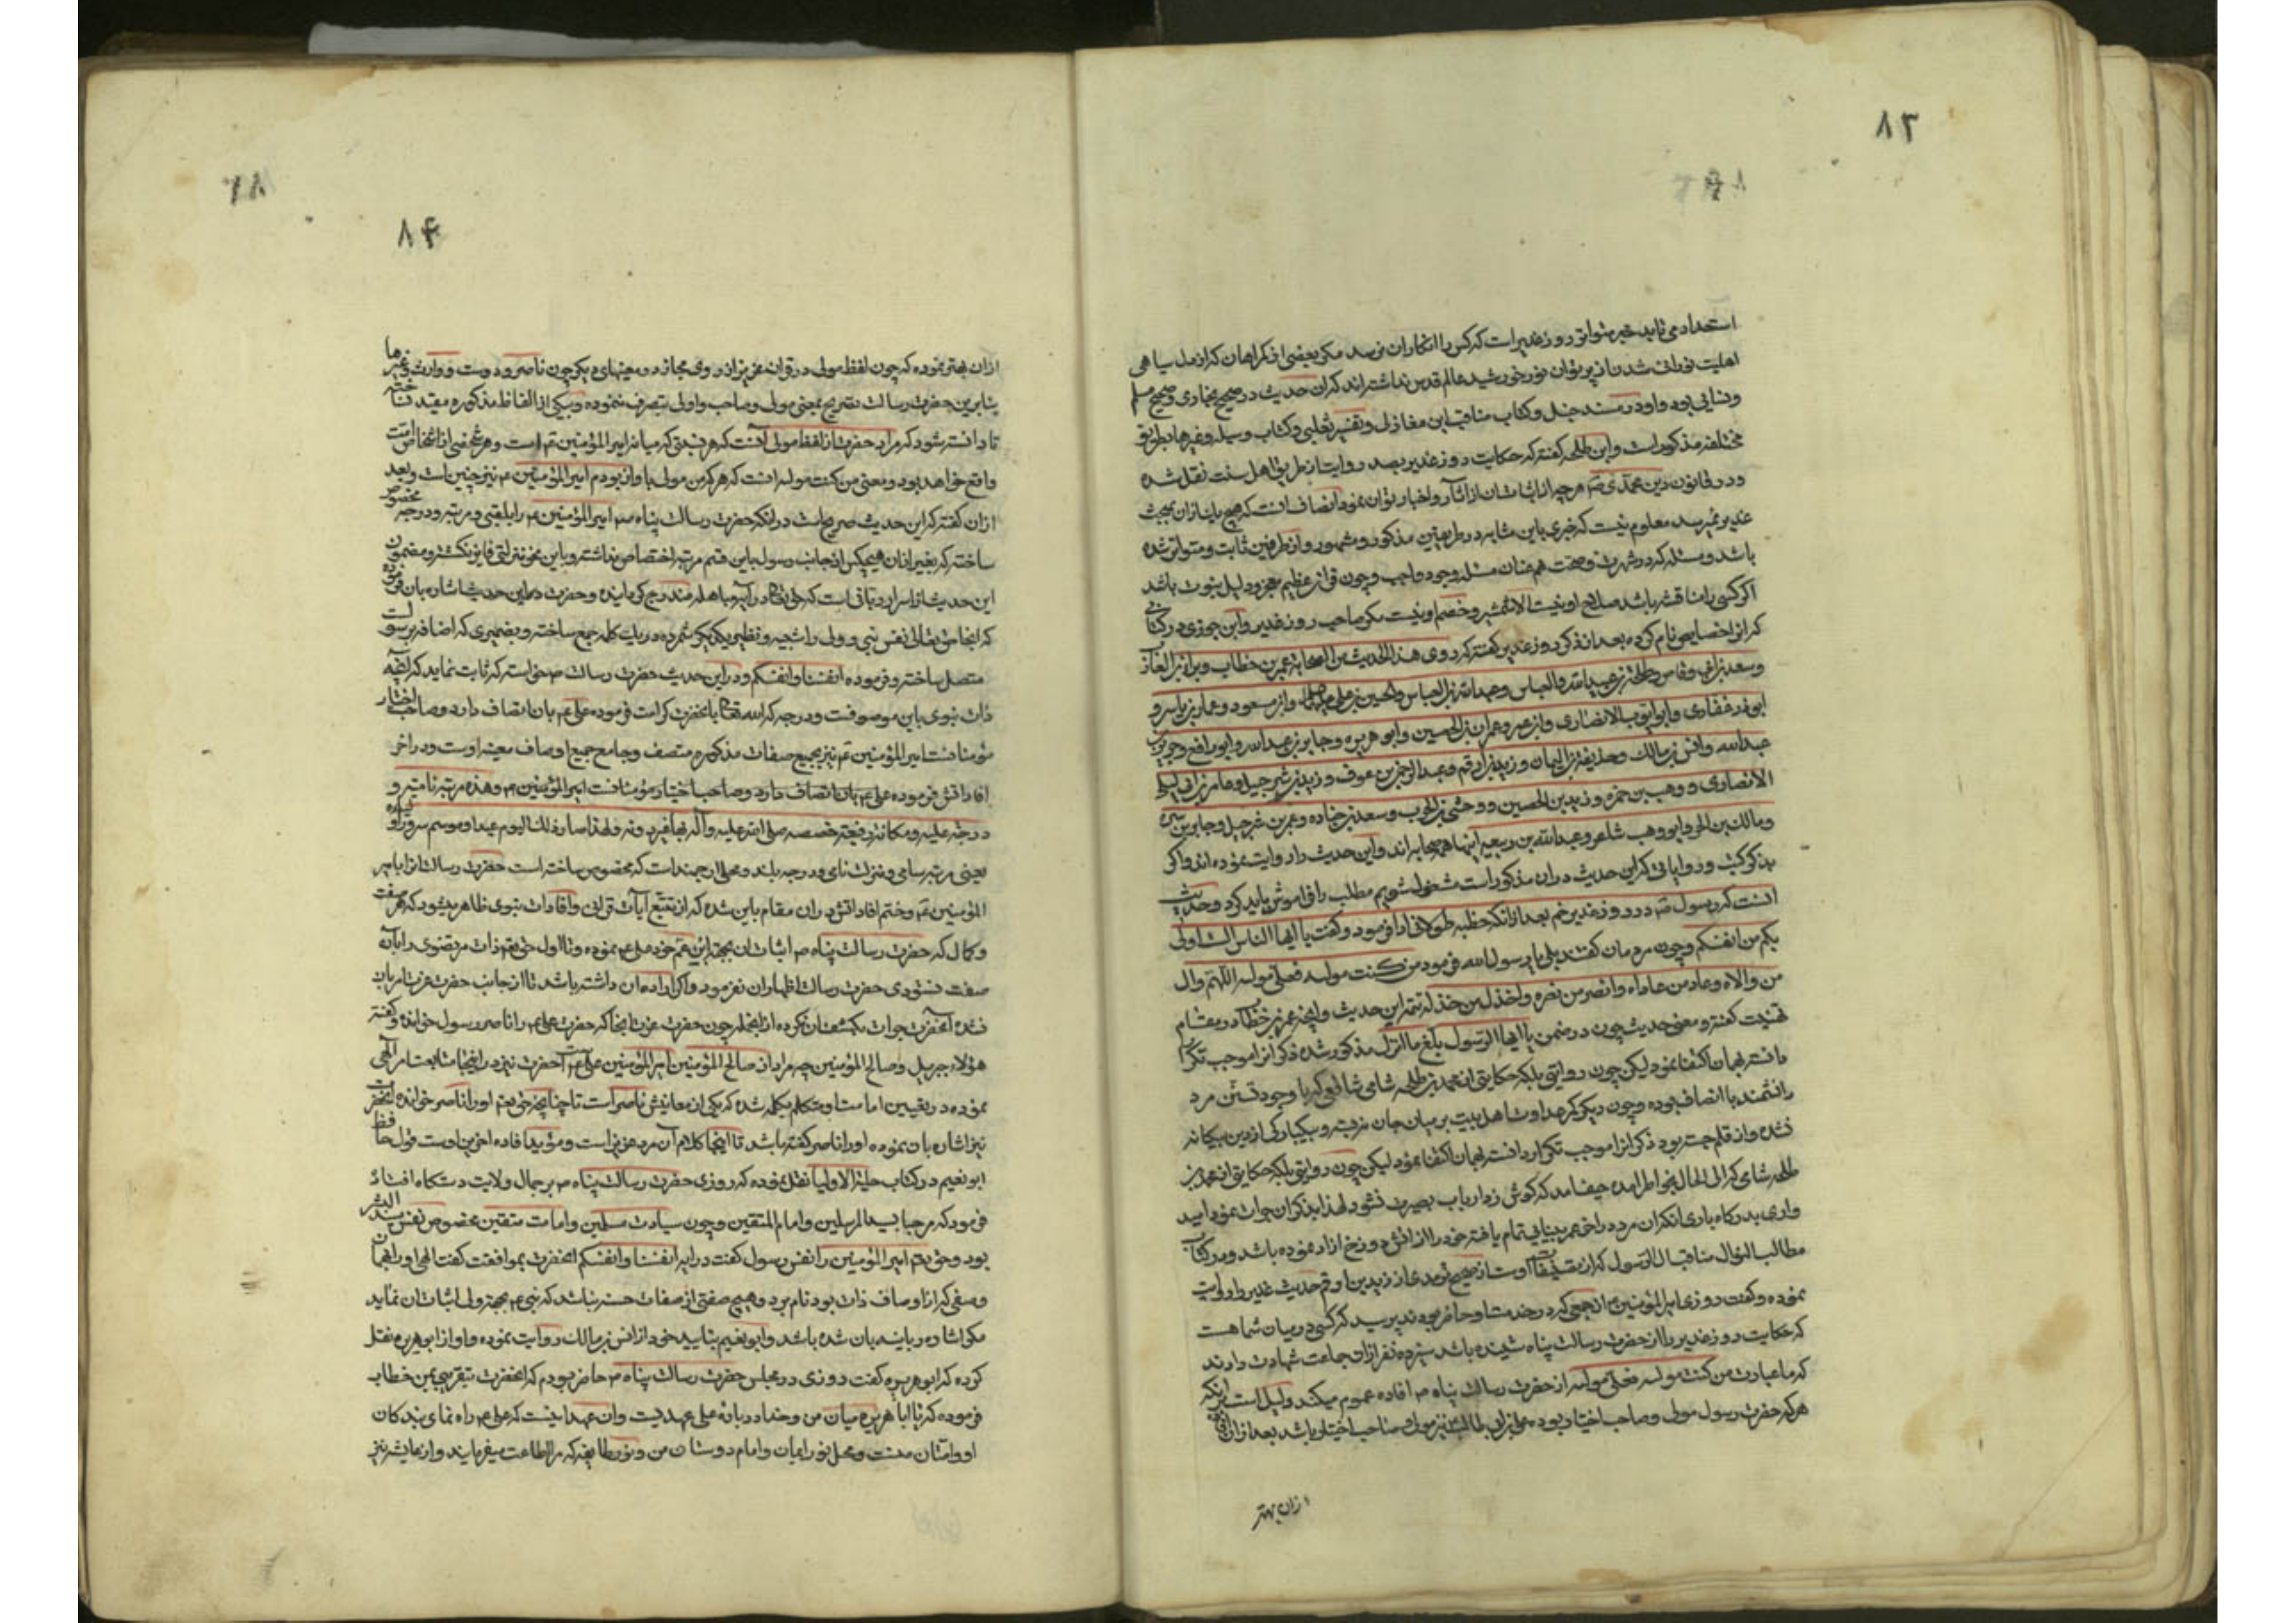 ۸۳
استمداد می نماید خبر متواتر روز غدیر است که کس را انکار ان نمی رسد مکر بعضی از کمراهان که از دل سیاهی
اهلیت نورانی شدن از پرتو ان نور خورشید عالم قدس نداشته اند که ان حدیث در صحیح بخاری و صحیح مسلم
و داود و مسند حنبل و کتاب مناقب ابن مغازلی و تفسیر ثعلبی و کتاب وسیله و غیرها بطرق
مختلفه مذکور است و ابن طلحه کفته که حکایت روز غدیر بصد روایت از طریق اهل سنت نقل شده
و در قانون دین محمدی ص هر چه از اثبات ان از آثار و اخبار توان نمود انصاف انست که هیچ یک از ان ببحث
غدیر نمیرسد معلوم نیست که خبری باین مثابه در طریقین مذکور و مشهور و از طرفین ثابت و متواتر شده
باشد و مسئله که در شهرت و صحت هم عنان مسئله وجود واجب و چون قران عظیم معجز و دلیل نبوت باشد
اکر کسی را مناقشه باشد صلاح او نیست الا شمشیر و خصم او نیست مکر صاحب روز غدیر و ابن جوزی در کتابی
که انرا خصایص نام کرده بعد از ذکر روز غدیر کفته که روی هذا الحدیث من الصحابة عمر بن خطاب و
و سعد بن ابی وقاص و طلحة بن عبید الله و العباس و عبد الله بن العباس و الحسین بن علی و ابن مسعود و عمار بن یاسر و
ابو ذر غفاری و ابو ایوب الانصاری و ابن عمر و عمران بن الحسین و ابو هریره و جابر بن عبد الله و ابو رافع و جریر بن
عبد الله و انس بن مالک و حذیفة بن الیمان و زید بن ارقم و عبد الرحمن بن عوف و زید بن شرحبیل و عامر بن
الانصاری و وهب بن حمزه و زید بن الحصین و وحشی بن الحرب و سعد بن جناده و عمر بن شرحبیل و جابر بن سمره
و مالک بن الحویرث و ابو وهب شاعر و عبد الله بن ربیعه اینها همه صحابه اند و این حدیث را روایت نموده اند و اکر
بذکر کتب و روایاتی که این حدیث در ان مذکور است مشغول شویم مطلب را فراموش باید کرد و حدیث
انست که رسول ص در روز غدیر خم بعد از انکه خطبه طولانی ادا فرمود و کفت یا ایها الناس الست اولی
بکم من انفسکم و چون مردمان کفتند بلی یا رسول الله فرمود من کنت مولاه فعلی مولاه اللهم وال
من والاه و عاد من عاداه و انصر من نصره و اخذل من خذله تتمه این حدیث و انچه عمر بن خطاب در مقام
تهنیت کفته و معنی حدیث چون در ضمن یا ایها الرسول بلغ ما انزل مذکور شده ذکر انرا موجب تکرار
دانسته بهمان اکتفا نمود لیکن چون روایتی بلکه حکایتی از محمد بن طلحه شامی شافعی که با وجود تسنن مرد
دانشمند با انصاف بوده و چون دیکر که عداوت اهل بیت بر میان جان نزده و بیکبارکی از دین بیکانه
نشده و از قلم جسته بود ذکر انرا موجب تکرار دانسته بهمان اکتفا نمود لیکن چون روایتی بلکه حکایتی از محمد بن
طلحه شامی که الی الحال بخاطر امده حیف امد که کوش زد ارباب بصیرت نشود لهذا بذکر ان جرات نمود امید
واری بدرکاه باری انکه ان مرد در اخر عمر بینایی تمام یافته خود را از اتش دوزخ ازاد نموده باشد و در کتاب
مطالب السؤال مناقب ال الرسول که از تصنیفات اوست از صحیح ترمذی از زید بن ارقم حدیث غدیر را روایت
نموده و کفت روزی امیر المؤمنین ع از جمعی که در خدمت او حاضر بودند پرسید که کسی در میان شما هست
که حکایت روز غدیر را از حضرت رسالت پناه شنیده باشد سیزده نفر از ان جماعت شهادت دادند
که ما عبارت من کنت مولاه فعلی مولاه از حضرت رسالت پناه ص افاده عموم میکند و دلیل است بر انکه
هر که حضرت رسول مولی و صاحب اختیار بوده علی بن ابی طالب نیز مولی و صاحب اختیار باشد بعد از ان افاده
ازان بهتر
۸۴
ازان بهتر نموده که چون لفظ مولی در قران عزیز از روی مجاز در معنیهای دیکر چون ناصر و دوست و وارث و غیرها
بنابرین حضرت رسالت تصریح بمعنی مولی و صاحب و اولی بتصرف ننموده و بیکی از الفاظ مذکوره مقید نساخته
تا دانسته شود که مراد حضرت از لفظ مولی آنست که هر نسبتی که میانه امیر المؤمنین ع است و هر شخصی از اشخاص امت
واقع خواهد بود و معنی من کنت مولاه انست که هر که من مولی با و از بودم امیر المؤمنین ع نیز چنین است و بعد
ازان کفته که این حدیث صریح است در انکه حضرت رسالت پناه ص امیر المؤمنین ع را بلقبی و مرتبه و درجه مخصوص
ساخته که بغیر ازان هیچکس از جانب رسول باین قسم مرتبه اختصاص نداشته و باین نحو منزلتی فایز نکشته و مضمون
این حدیث از اسرار ربانی است که حق تعالی در آیه مباهله مندرج کردانیده و حضرت در این حدیث اشاره بان فرموده
که انجا حق تعالی نفس نبی و ولی را شبیه و نظیر یکدیکر شمرده در یک کلمه جمع ساخته و بضمیری که اضافه برسول است
متصل ساخته و فرموده انفسنا و انفسکم و در این حدیث حضرت رسالت ص خواسته که ثابت نماید که انچه
ذات نبوی باین موصوفست و درجه که الله تعالی بانحضرت کرامت فرموده علی ع بان اتصاف دارد و صاحب اختیار
مؤمنانست امیر المؤمنین ع نیز بجمیع صفات مذکوره متصف و جامع جمیع اوصاف معینه اوست و در اخر
افاداتش فرموده علی ع بان اتصاف دارد و صاحب اختیار مؤمنانست امیر المؤمنین ع و هذه مرتبة نامیة و
درجة علیة و مکانة رفیعة خصصه صلی الله علیه و آله بها فلهذا صار ذلک الیوم عیدا و موسم سرور
یعنی مرتبه سامی و منزلت نامی و درجه بلند و محل ارجمند است که مخصوص ساخته است حضرت رسالت انرا بامیر
المؤمنین ع و ختم افاداتش در ان مقام باین شده که از تتبع آیات قرانی و افادات نبوی ظاهر میشود که هر صفت
و کمال که حضرت رسالت پناه ص اثبات ان بجهة ابن عم خود علی ع نموده و تا اول حق تعالی ذات مرتضوی را بان
صفت نستودی حضرت رسالت اظهار ان نفرمود و اکر اراده ان داشته باشد تا از جانب حضرت عزت امر بان
نشده آنحضرت جرات بکشف ان نکرده از انجمله چون حضرت عزت انجا که حضرت علی ع را ناصر رسول خوانده و کفته
هؤلاء جبریل و صالح المؤمنین چه مراد از صالح المؤمنین امیر المؤمنین علی ع است آنحضرت نیز در اینجا متابعت امر الهی
نموده در تعیین امامت او متکلم بکلمه شده که یکی از معانیش ناصر است تا چنانچه حق تعم او را ناصر خوانده انحضرت
نیز اشاره بان نموده او را ناصر کفته باشد تا اینجا کلام آن مرد عزیز است و مؤید افاده اخرین اوست قول حافظ
ابو نعیم در کتاب حلیة الاولیا نقل نموده که روزی حضرت رسالت پناه ص بر جمال ولایت دستکاه افتاد
فرمود که مرحبا بسید المرسلین و امام المتقین و چون سیادت مسلمین و امامت متقین مخصوص نفس سید البشر
بود و حق تعم امیر المؤمنین را نفس رسول کفت در ایه انفسنا و انفسکم انحضرت بموافقت کفت الهی او را بهمان
وصفی که از اوصاف ذات بود نام برد و هیچ صفتی از صفات حسنه نباشد که نبی ع بجهة ولی اثبات ان نماید
مکر اشاره ربانیه بان شده باشد و ابو نعیم باسناد خود از انس بن مالک روایت نموده و او از ابو هریره نقل
کرده که ابو هریره کفت روزی در مجلس حضرت رسالت پناه ص حاضر بودم که انحضرت بتقریبی بمن خطاب
فرموده که یا ابا هریره میان من و خدا در باب علی عهدیست و ان عهد اینست که علی ع راه نمای بندکان
او و آستان منست و محل نور ایمان و امام دوستان من و نور طایفه که مرا اطاعت میفرمایند و از نیز